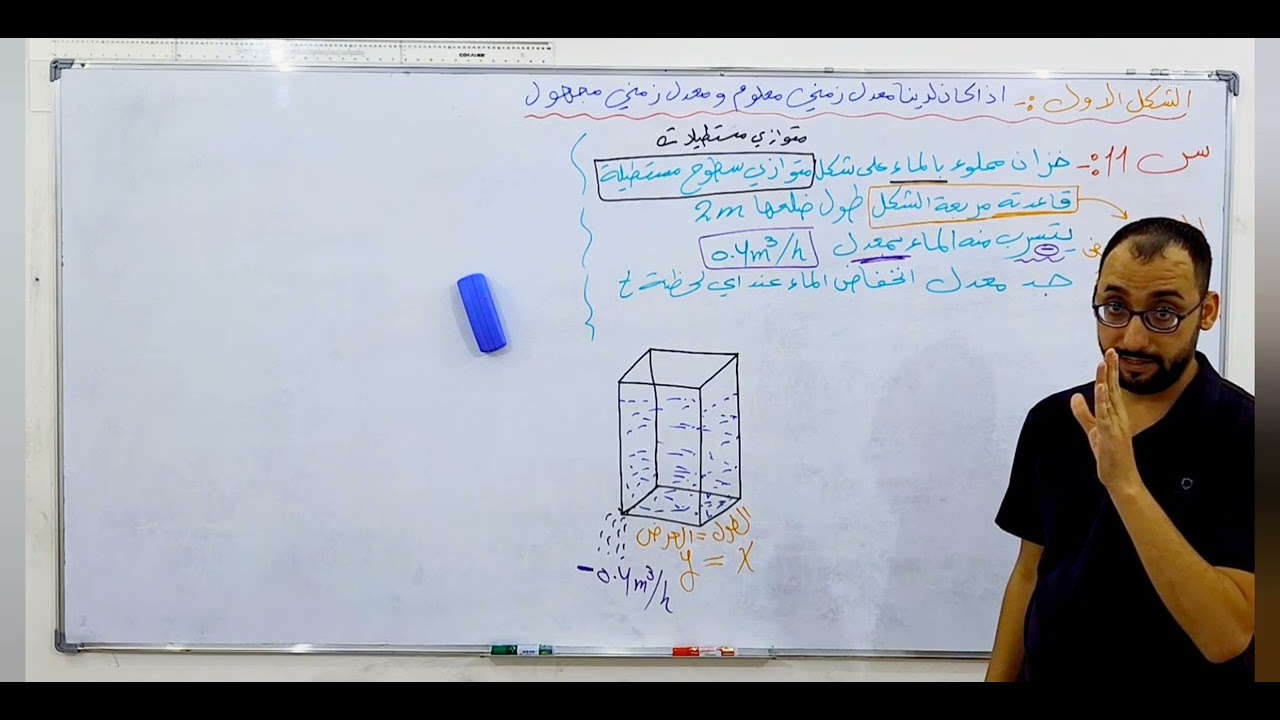 الشكل الاول :- اذا كان لدينا معدل زمني معلوم و معدل زمني مجهول
متوازي مستطيلات
س 11:- خزان مملوء بالماء على شكل متوازي سطوح مستطيلة
قاعدته مربعة الشكل طول ضلعها 2m
يتسرب منه الماء بمعدل 0.4m³/h
جد معدل انخفاض الماء عند اي لحظة t
الطول = العرض
y = x
-0.4m³/h